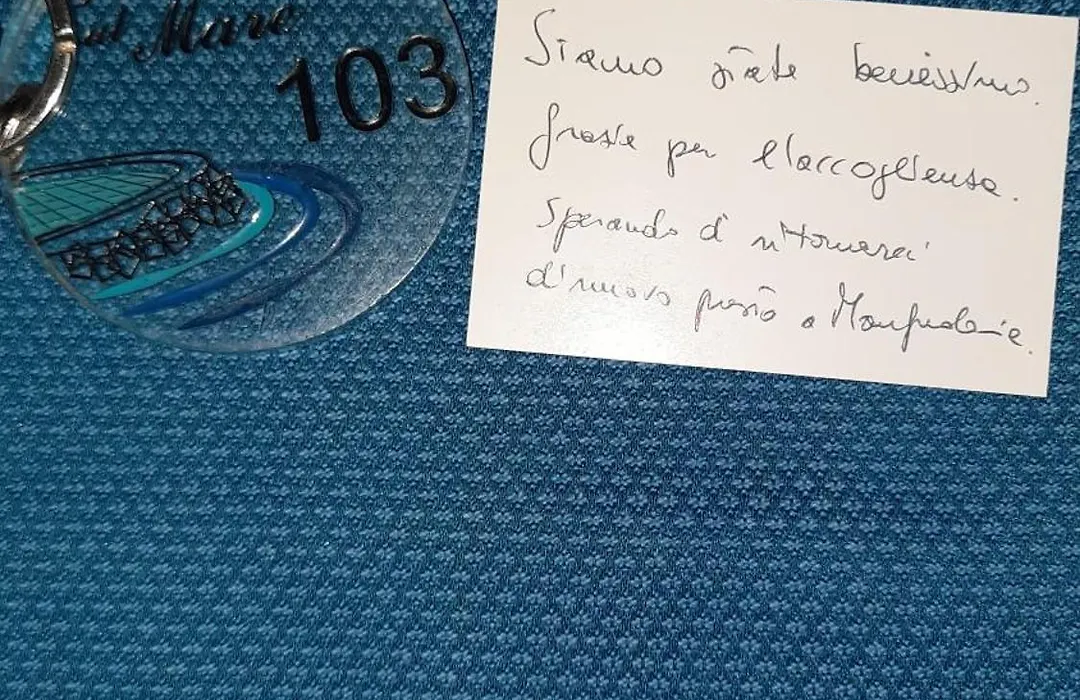 sul Mare
103
Siamo state benissimo.
Grazie per l'accoglienza.
Sperando di ritornarci
di nuovo presto a Manfredonia.